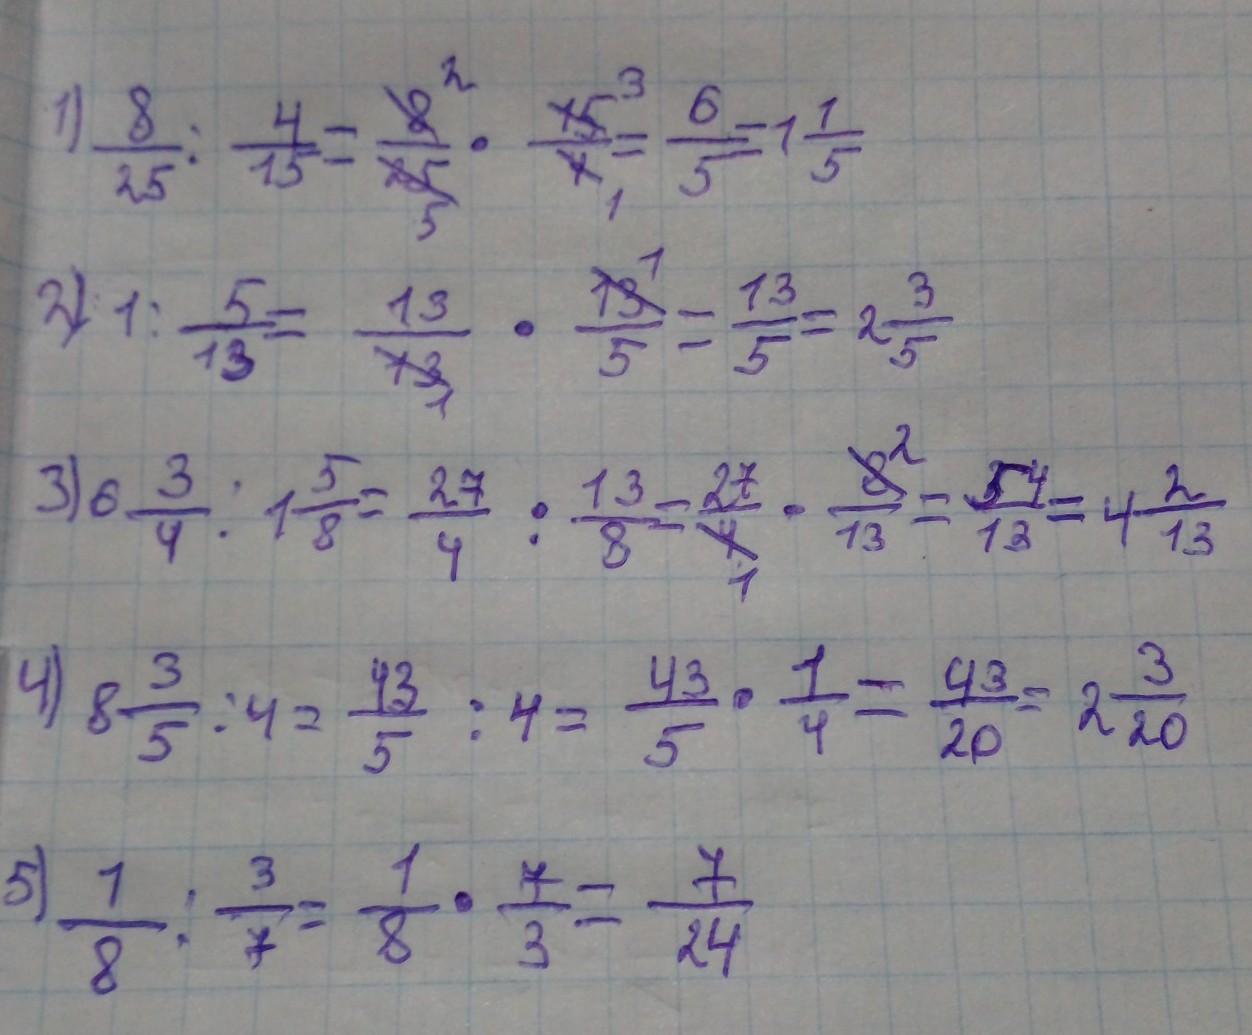 1) 8/25 : 4/15 = 8 2/25 5 · 15 3/4 1 = 6/5 = 1 1/5
2) 1 : 5/13 = 13/13 1 · 13 1/5 = 13/5 = 2 3/5
3) 6 3/4 : 1 5/8 = 27/4 : 13/8 = 27/4 1 · 8 2/13 = 54/13 = 4 2/13
4) 8 3/5 : 4 = 43/5 : 4 = 43/5 · 1/4 = 43/20 = 2 3/20
5) 1/8 : 3/7 = 1/8 · 7/3 = 7/24